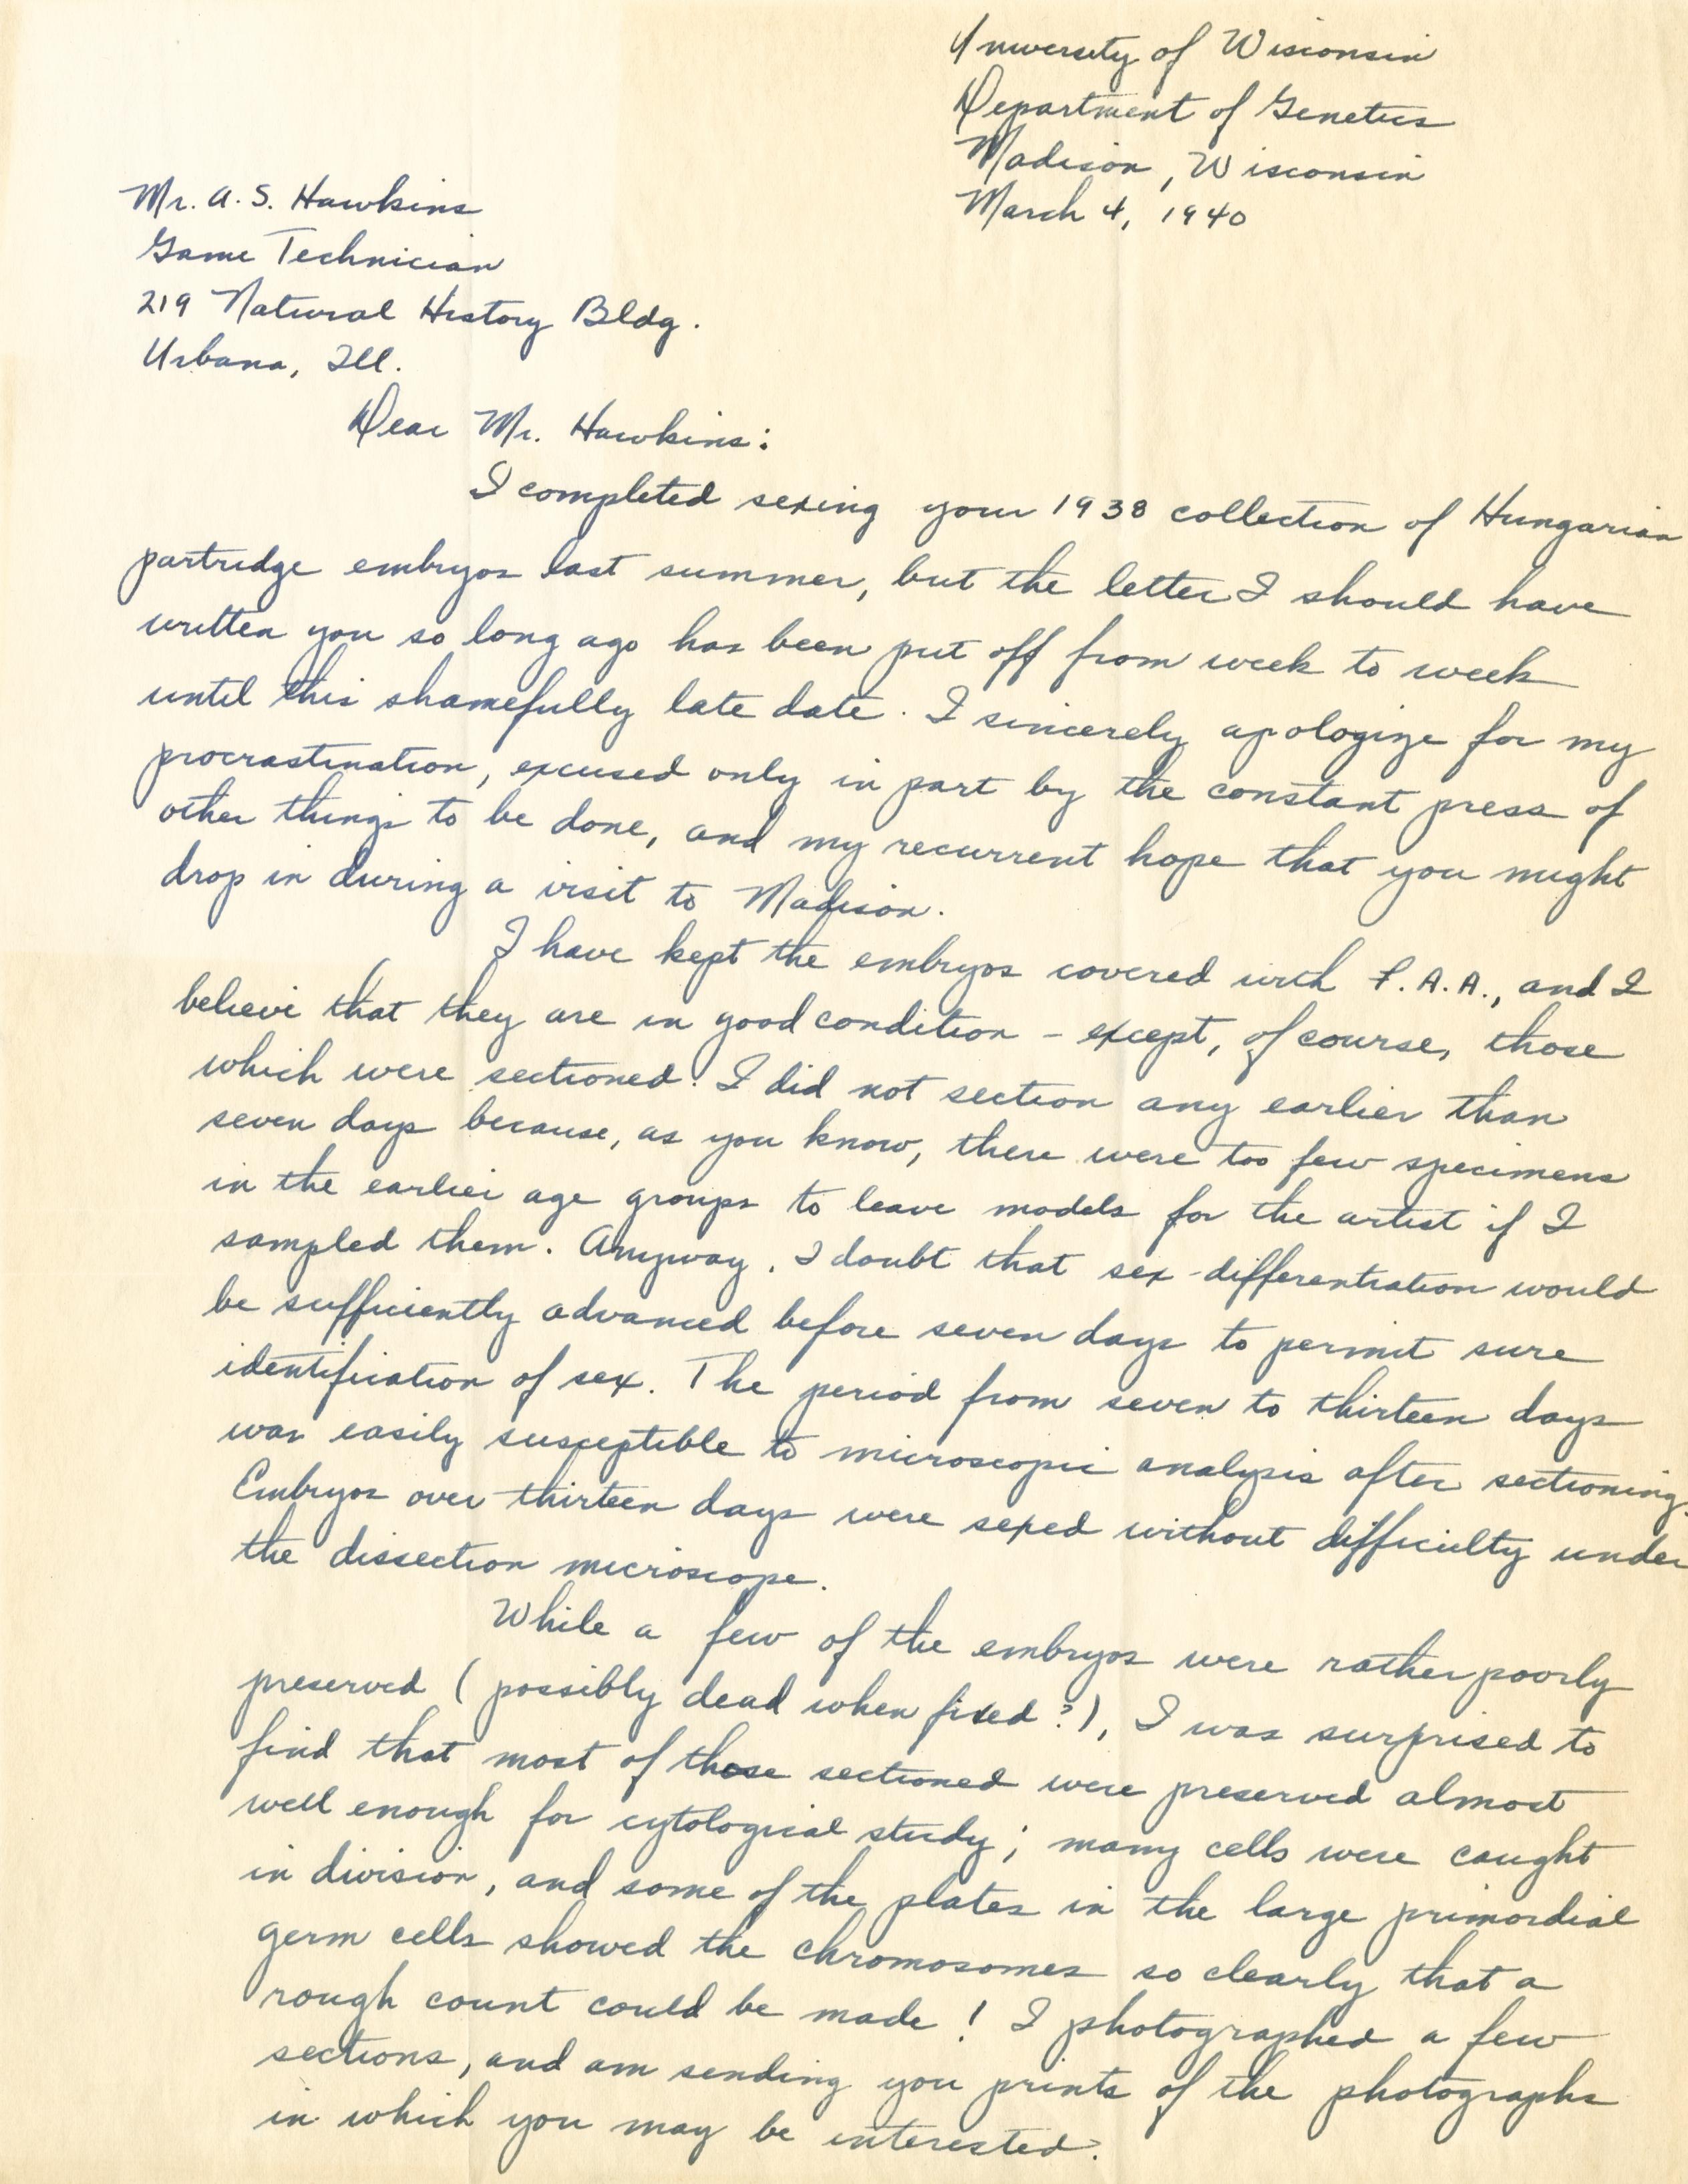 University of Wisconsin
Department of Genetics
Madison, Wisconsin
March 4, 1940
Mr. A. S. Hawkins
Game Technician
219 Natural History Bldg.
Urbana, Ill.
Dear Mr. Hawkins:
I completed sexing your 1938 collection of Hungarian
partridge embryos last summer, but the letter I should have
written you so long ago has been put off from week to week
until this shamefully late date. I sincerely apologize for my
procrastination, excused only in part by the constant press of
other things to be done, and my recurrent hope that you might
drop in during a visit to Madison.
I have kept the embryos covered with F.A.A., and I
believe that they are in good condition - except, of course, those
which were sectioned. I did not section any earlier than
seven days because, as you know, there were too few specimens
in the earlier age groups to leave models for the artist if I
sampled them. Anyway, I doubt that sex-differentiation would
be sufficiently advanced before seven days to permit sure
identification of sex. The period from seven to thirteen days
was easily susceptible to microscopic analysis after sectioning.
Embryos over thirteen days were sexed without difficulty under
the dissection microscope.
While a few of the embryos were rather poorly
preserved (possibly dead when fixed?), I was surprised to
find that most of those sectioned were preserved almost
well enough for cytological study; many cells were caught
in division, and some of the plates in the large primordial
germ cells showed the chromosomes so clearly that a
rough count could be made! I photographed a few
sections, and am sending you prints of the photographs
in which you may be interested.